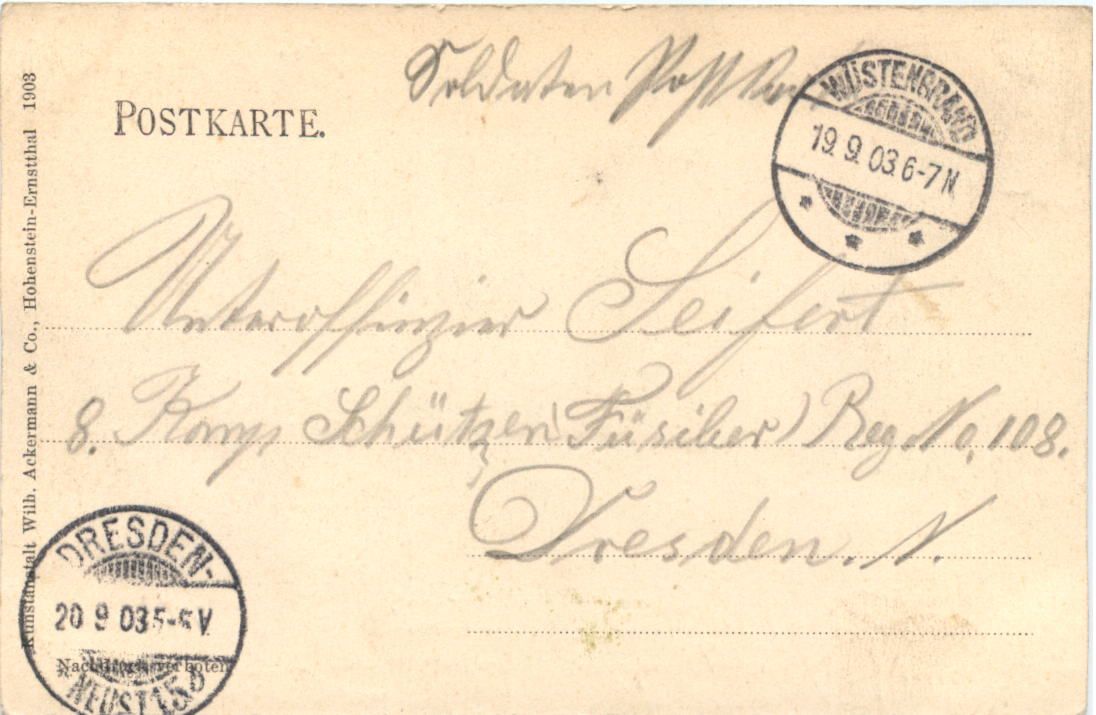 Soldaten Postkarte
POSTKARTE.
WÜSTENBRAND
19.9.03.6-7N
Unteroffizier Seifert
8. Komp. Schützen (Füsilier) Reg. No. 108.
Dresden. N.
DRESDEN-
20 9 03 5-6 V
NEUST.
Nachdruck verboten
Kunstanstalt Wilh. Ackermann & Co., Hohenstein-Ernstthal 1903